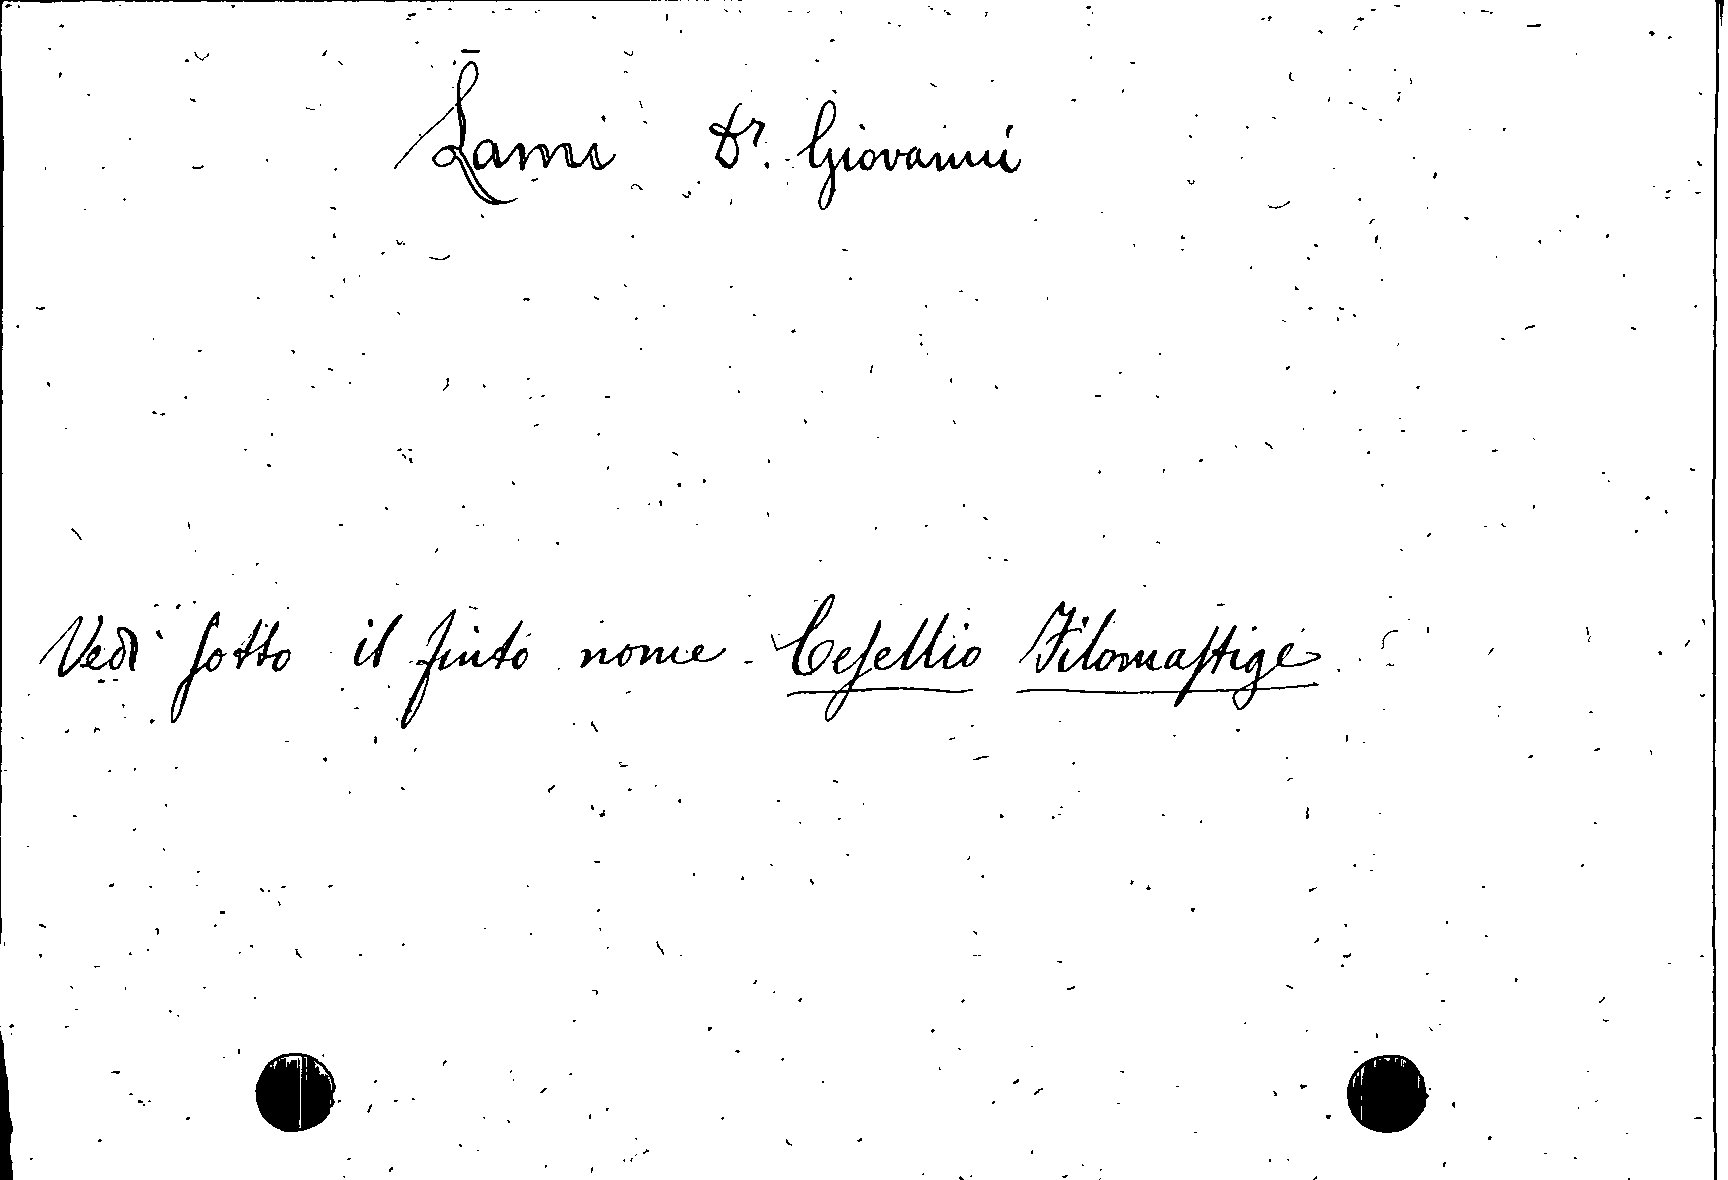 Lami Dr. Giovanni
Vedi ſotto il finto nome Ceſellio Filomaſtige